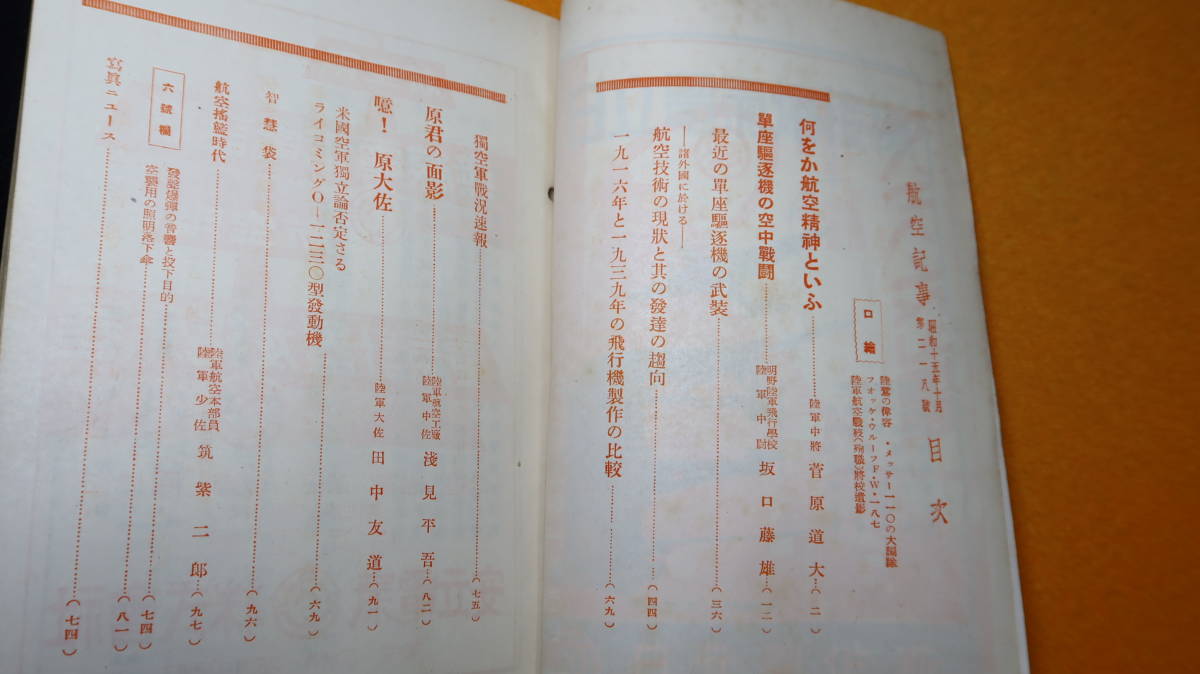 航空記事 昭和十五年十月 第二一八號 目次
口繪
陸鷲の偉容・メッサー一一〇の大編隊
フオッケ・ウルーフF・W・一八七
陸軍航空戰歿(殉職)將校遺影
何をか航空精神といふ……陸軍中將 菅原道大…(二)
單座驅逐機の空中戰鬪……明野陸軍飛行學校 陸軍中尉 坂口藤雄…(一二)
最近の單座驅逐機の武裝……(三六)
——諸外國に於ける——
航空技術の現狀と其の發達の趨向……(四四)
一九一六年と一九三九年の飛行機製作の比較……(六九)
獨空軍戰況速報……(七五)
原君の面影……陸軍航空工廠 陸軍中佐 淺見平吾…(八二)
噫！ 原大佐……陸軍大佐 田中友道…(九一)
米國空軍獨立論否定さる
ライコミングO—一二三〇型發動機……(六九)
智慧袋……(九六)
航空搖籃時代……陸軍航空本部員 陸軍少佐 筑紫二郎…(九七)
六號欄
發聲爆彈の音響と投下目的……(七四)
空襲用の照明落下傘……(八一)
寫眞ニュース……(七四)